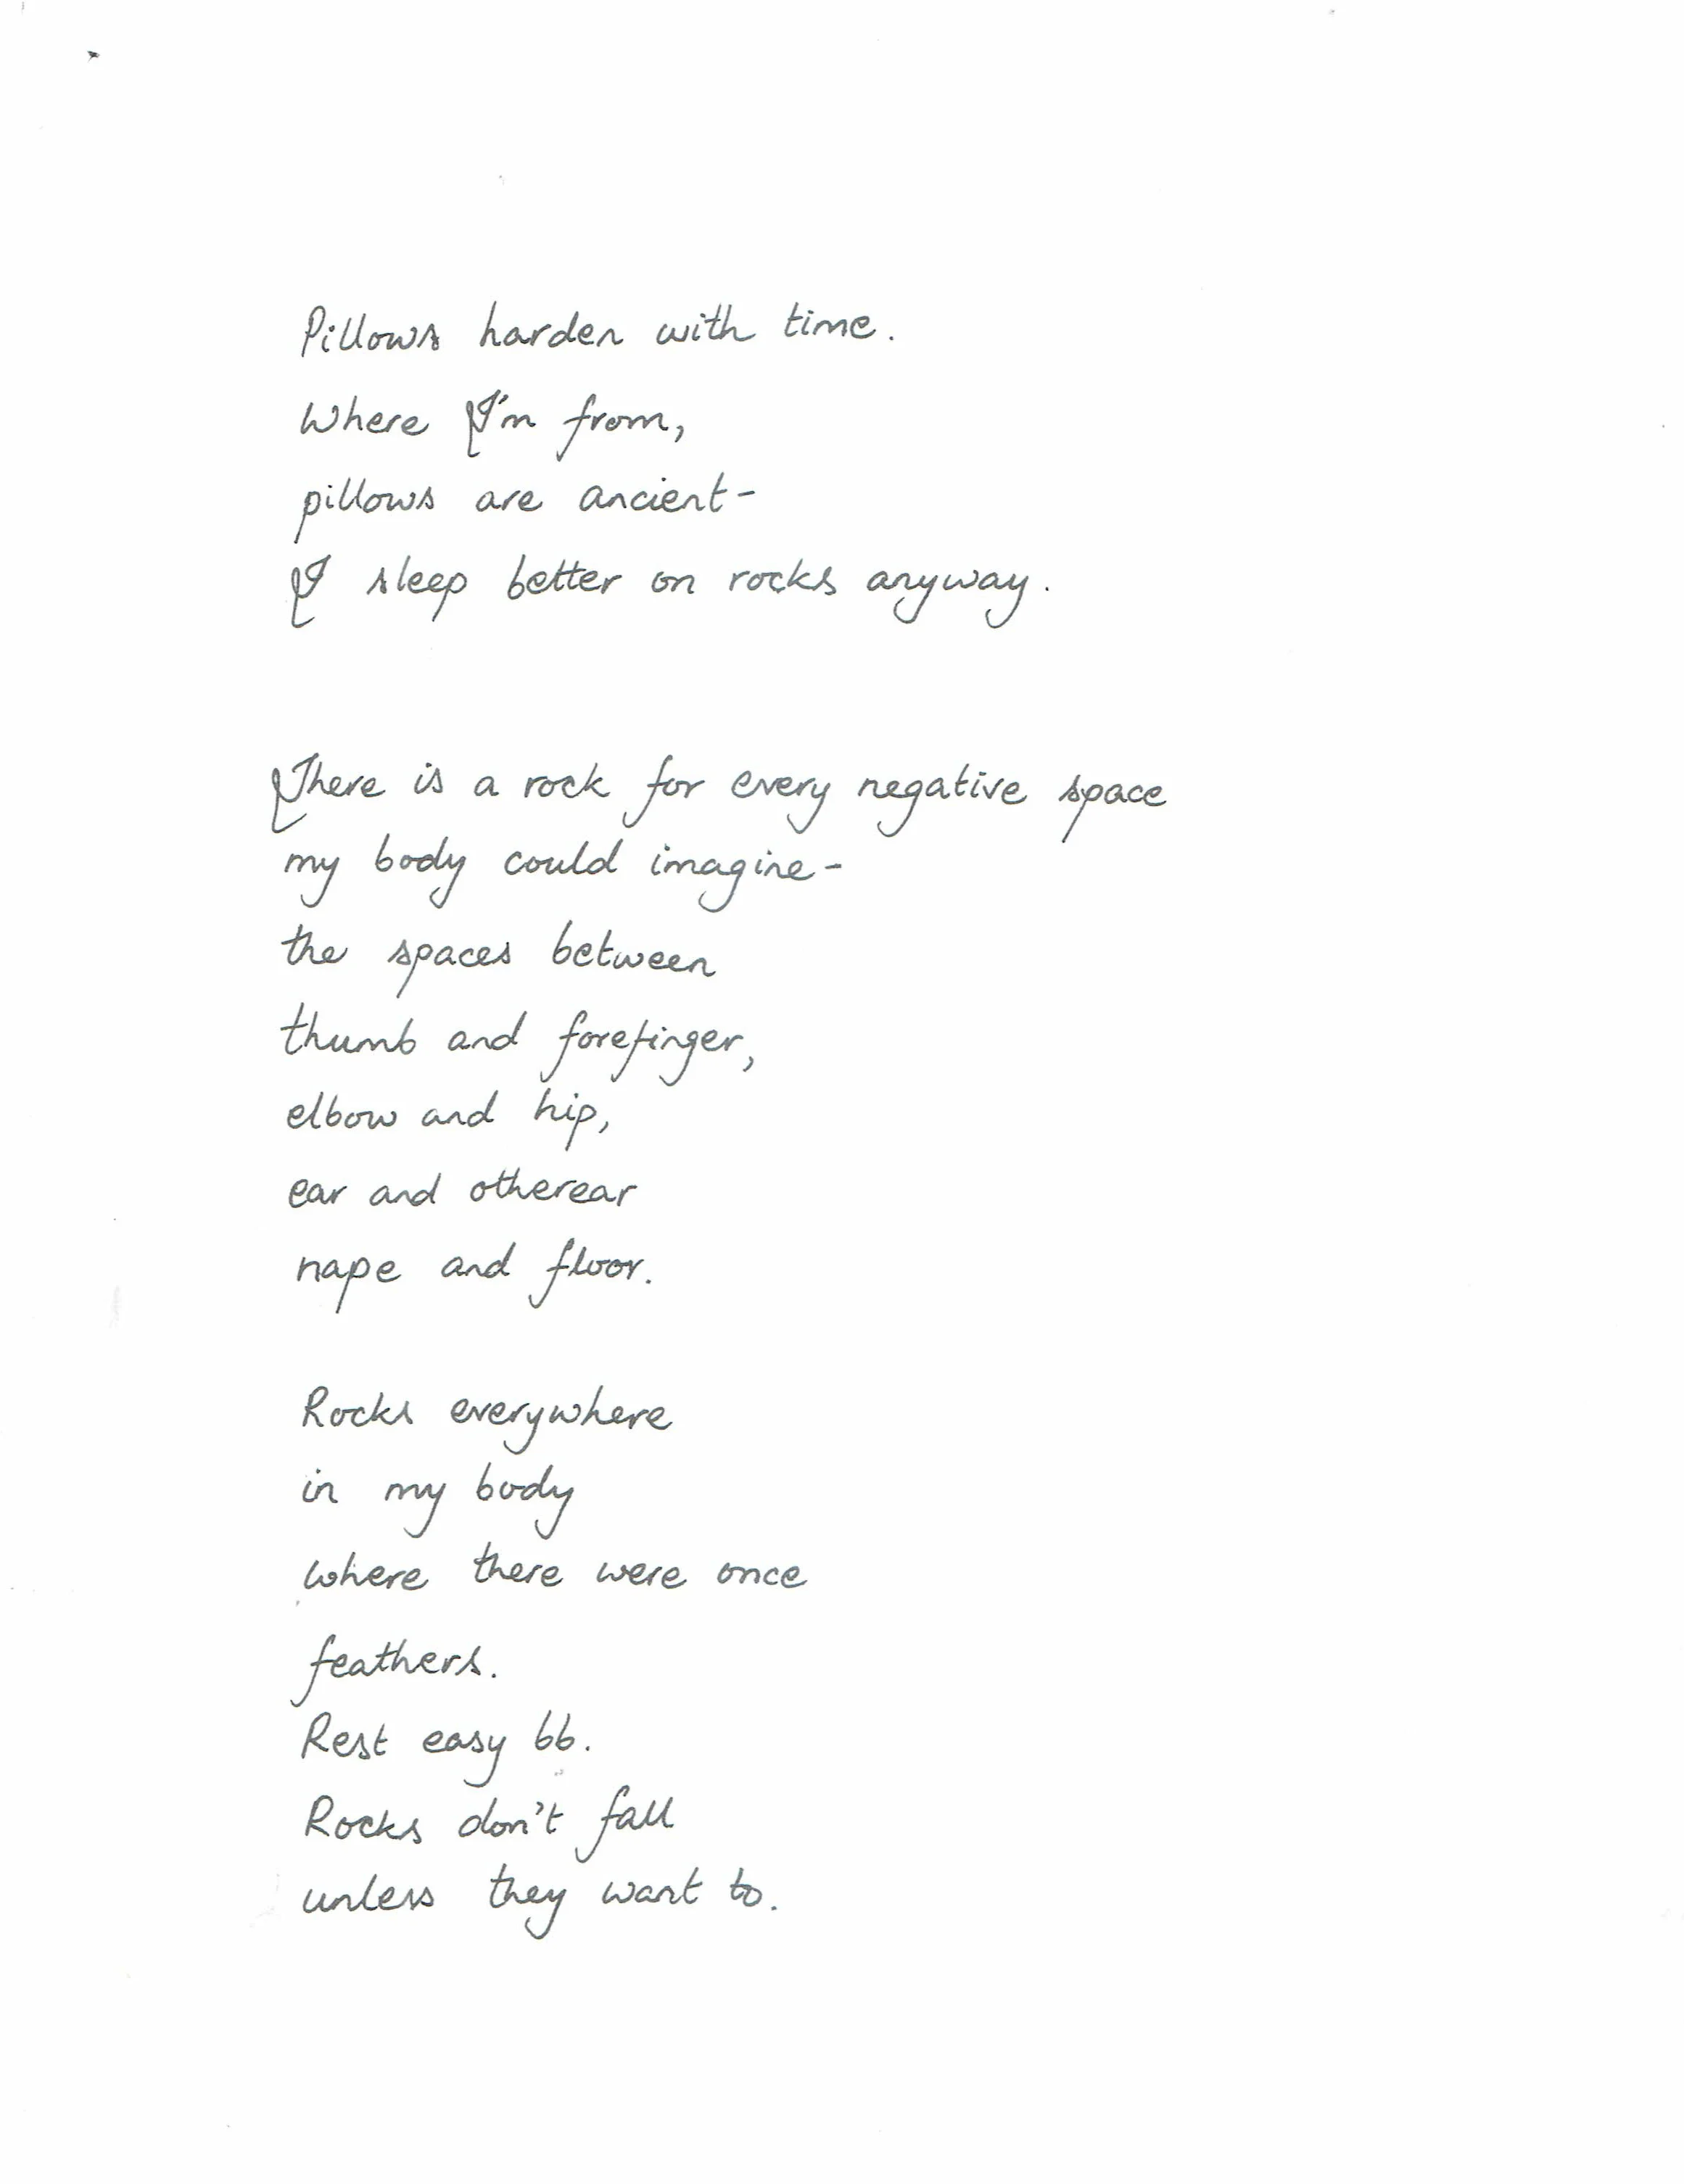 Pillows harden with time.
Where I'm from,
pillows are ancient-
I sleep better on rocks anyway.
There is a rock for every negative space
my body could imagine-
the spaces between
thumb and forefinger,
elbow and hip,
ear and otherear
nape and floor.
Rocks everywhere
in my body
where there were once
feathers.
Rest easy bb.
Rocks don't fall
unless they want to.